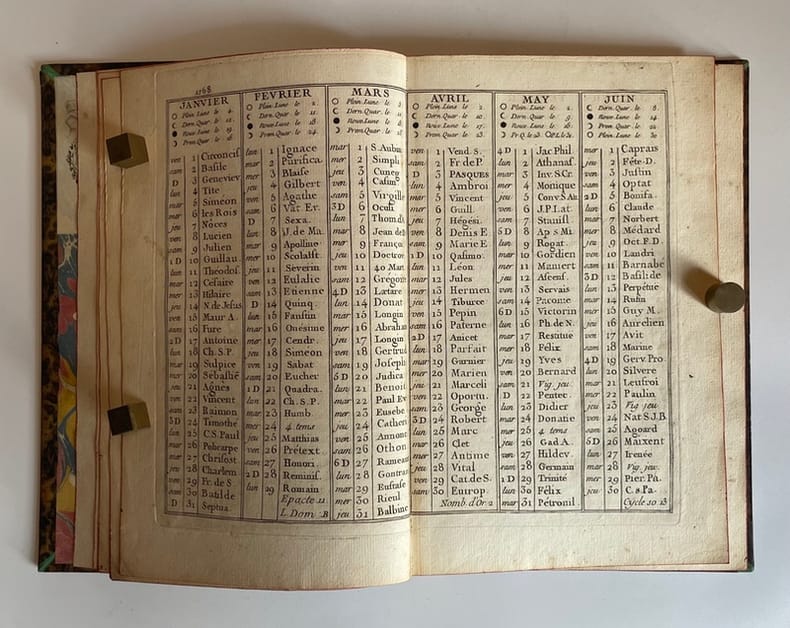 1768
JANVIER
Plein Lune le 4.
Dern Quar. le 11.
Nouv. Lune le 19.
Prem Quar. le 26
ven 1 Circoncis
sam 2 Basile
D 3 Geneviev
lun 4 Tite
mar 5 Simeon
mer 6 les Rois
jeu 7 Nôces
ven 8 Lucien
sam 9 Julien
1 D 10 Guillau.
lun 11 Théodof.
mar 12 Cesaire
mer 13 Hilaire
jeu 14 N. de Jesus
ven 15 Maur A.
sam 16 Fure
2 D 17 Antoine
lun 18 Ch. S. P.
mar 19 Sulpice
mer 20 Sebastiẽ
jeu 21 Agnès
ven 22 Vincent
sam 23 Raimon
3 D 24 Timothe
lun 25 C S. Paul
mar 26 Policarpe
mer 27 Chrisost
jeu 28 Charlem
ven 29 Fr. de S
sam 30 Batilde
D 31 Septua.
FEVRIER
Plein Lune le 2.
Dern Quar. le 11.
Nouv. Lune le 18.
Prem Quar. le 24.
lun 1 Ignace
mar 2 Purifica.
mer 3 Blaise
jeu 4 Gilbert
ven 5 Agathe
sam 6 Vat. Ev.
D 7 Sexa.
lun 8 J. de Ma.
mar 9 Apolline
mer 10 Scolast.
jeu 11 Severin
ven 12 Eulalie
sam 13 Etienne
D 14 Quinq.
lun 15 Faustin
mar 16 Onésime
mer 17 Cendr.
jeu 18 Simeon
ven 19 Sabat
sam 20 Eucher
1 D 21 Quadra.
lun 22 Ch. S. P.
mar 23 Humb.
mer 24 4 tems
jeu 25 Matthias
ven 26 Prétext
sam 27 Honori.
2 D 28 Reminis.
lun 29 Romain
Epacte 11
L. Dom. B
MARS
Plein Lune le 3.
Dern Quar. le
Nouv. Lune le
Prem Quar. le
mar 1 S. Aubin
mer 2 Simpli
jeu 3 Cuneg
ven 4 Casim
sam 5 Virgille
3 D 6 Oculi
lun 7 Thom. d'A
mar 8 Jean de D
mer 9 Françoi
jeu 10 Doctrov
ven 11 40 Mart
sam 12 Grégoire
4 D 13 Lætare
lun 14 Donat
mar 15 Longin
mer 16 Abraham
jeu 17 Longin
ven 18 Gertrud
sam 19 Joseph
5 D 20 Judica
lun 21 Benoit
mar 22 Paul Ev
mer 23 Eusebe
jeu 24 Catheri
ven 25 Annonc
sam 26 Othon
6 D 27 Rameau
lun 28 Gontran
mar 29 Eustase
mer 30 Rieul
jeu 31 Balbine
AVRIL
Plein Lune le 2.
Dern Quar. le 10.
Nouv. Lune le 17.
Prem Quar. le 23.
ven 1 Vend. S.
sam 2 Fr de P
D 3 PASQUES
lun 4 Ambroi
mar 5 Vincent
mer 6 Guill.
jeu 7 Hégési.
ven 8 Denis E
sam 9 Marie E
1 D 10 Qasimo.
lun 11 Léon
mar 12 Jules
mer 13 Hermen
jeu 14 Tiburce
ven 15 Pepin
sam 16 Paterne
2 D 17 Anicet
lun 18 Parfait
mar 19 Garnier
mer 20 Marien
jeu 21 Marceli
ven 22 Oportu.
sam 23 George
3 D 24 Robert
lun 25 Marc
mar 26 Clet
mer 27 Antime
jeu 28 Vital
ven 29 Cat. de S.
sam 30 Europ.
Nomb. d'Or 2
MAY
Plein Lune le 2.
Dern Quar. le 9.
Nouv. Lune le 16.
4 D 1 Jac Phil.
lun 2 Athanas.
mar 3 Inv. S. Cr.
mer 4 Monique
jeu 5 Conv. S. Au.
ven 6 J. P. Lat.
sam 7 Stanisl
5 D 8 Ap. s Mi.
lun 9 Rogat.
mar 10 Gordien
mer 11 Mamert
jeu 12 Ascens.
ven 13 Servais
sam 14 Pacome
6 D 15 Victorin
lun 16 Ph. de N.
mar 17 Restitue
mer 18 Félix
jeu 19 Yves
ven 20 Bernard
sam 21 Vig. jeu
D 22 Pentec.
lun 23 Didier
mar 24 Donatie
mer 25 4 tems
jeu 26 Gad A.
ven 27 Hildev.
sam 28 Germain
1 D 29 Trinité
lun 30 Félix
mar 31 Pétronil
JUIN
Dern Quar. le 8.
Nouv. Lune le 14
Prem. Quar. le 22.
Plein Lune le 30
mer 1 Caprais
jeu 2 Fête-D.
ven 3 Justin
sam 4 Optat
2 D 5 Bonifa.
lun 6 Claude
mar 7 Norbert
mer 8 Médard
jeu 9 Oct. F. D.
ven 10 Landri
sam 11 Barnabé
3 D 12 Basil. de
lun 13 Perpétue
mar 14 Rufin
mer 15 Guy M.
jeu 16 Aurelien
ven 17 Avit
sam 18 Marine
4 D 19 Gerv. Pro.
lun 20 Silvere
mar 21 Leufroi
mer 22 Paulin
jeu 23 Vig. jeu
ven 24 Nat S. J. B.
sam 25 Agoard
5 D 26 Maixent
lun 27 Irenée
mar 28 Vig. jeu.
mer 29 Pier. Pa.
jeu 30 C. s Pa.
Cycle so 13